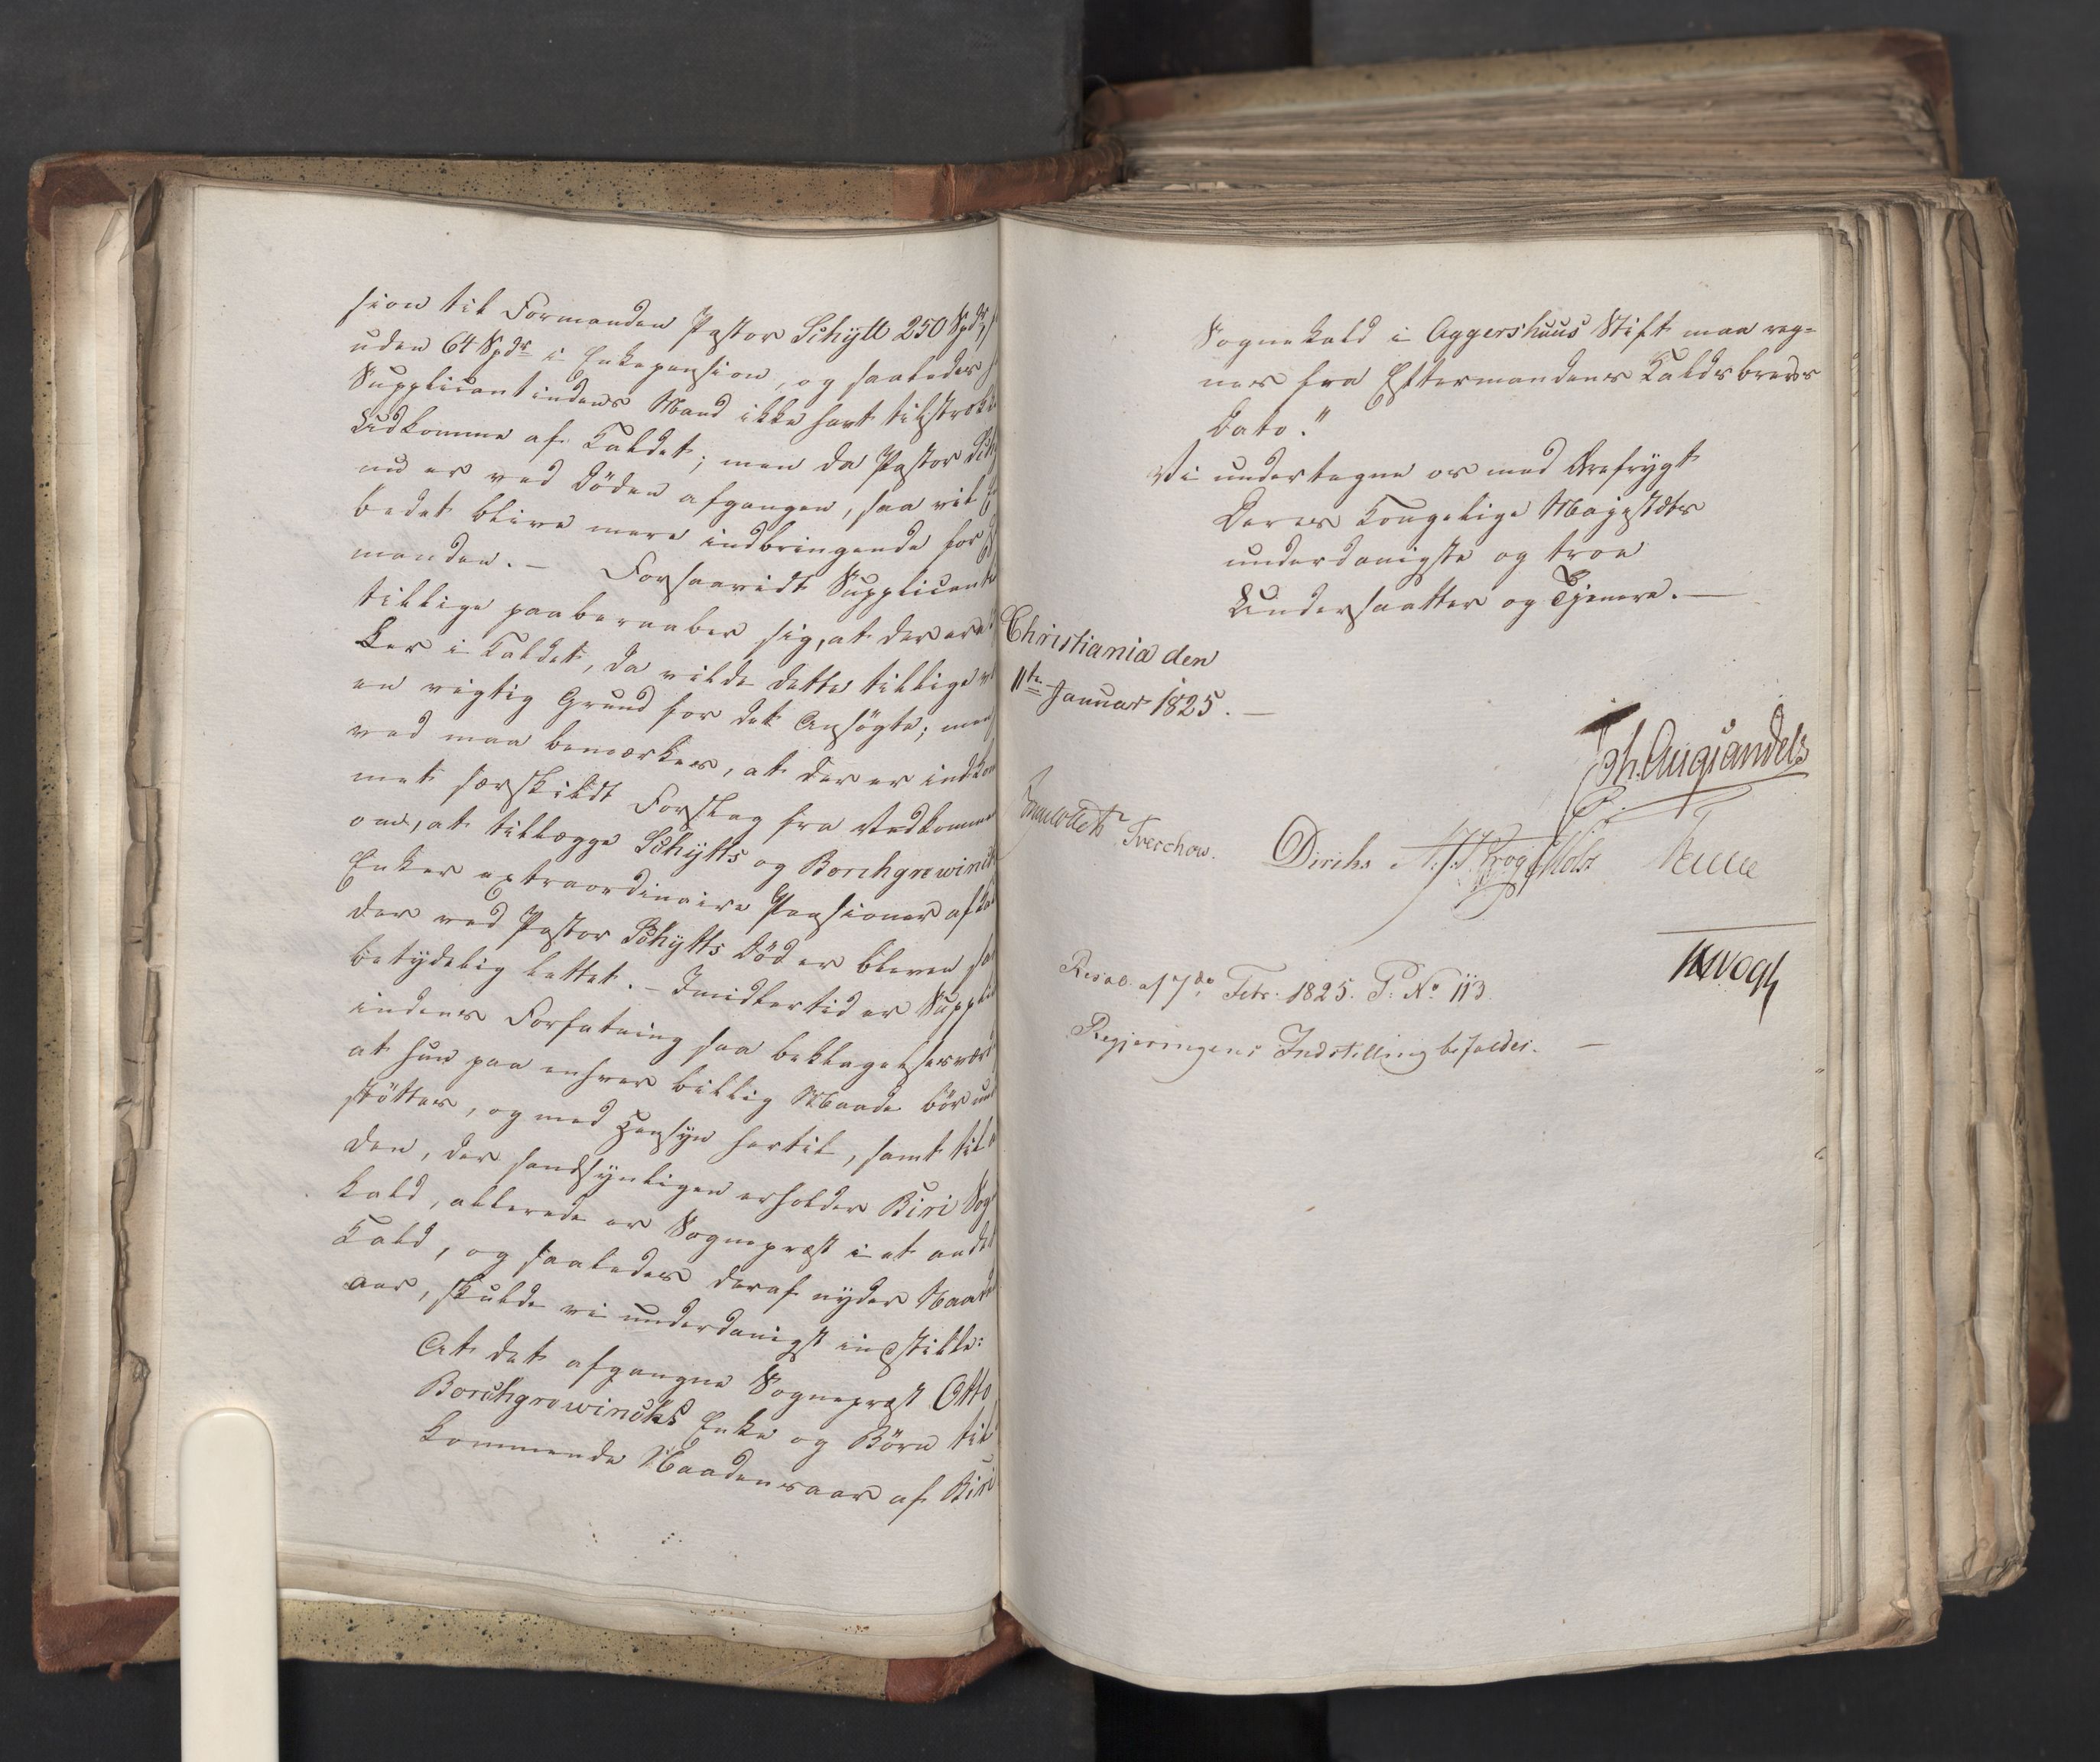 sion til Formanden Pastor Schytt 250 Spdr,
uden 64 Spdr i Enkepension, og saaledes
Supplicantindens Mand ikke havt tilstrække
Udkomme af Kaldet; men da Pastor Sch
nu er ved Döden afgangen, saa vil
bedet blive mere indbringende for
manden. — Forsaavidt Supplicanti
tillige paaberaaber sig, at der ere
ker i Kaldet, da vilde dette tillige
en vigtig Grund for det Ansögte; men
ved maa bemærkes, at der er indkom
met særskildt Forslag fra Vedkomme
om, at tillægge Schytts og Borchgrewinck
Enker extraordinaire Pensioner af
der ved Pastor Schytts Död er bleven saa
betydelig lettet. — Imidlertid er Suppli
indens Forfatning saa beklagelsesværd
at hun paa enhver billig Maade bör un
støttes, og med Hensyn hertil, samt til a
den, der sandsynligen erholder Biri Sog
Kald, allerede er Sognepræst i et andet
Kald, og saaledes deraf nyder Naade
aar, skulde vi underdanigst indstille:
At det afgangne Sognepræst Otto
Borchgrewincks Enke og Börn til
kommende Naadensaar af Biri
Sognekald i Aggershuus Stift maa reg=
nes fra Eftermandens Kaldsbrevs
Dato."
Vi undertegne os med Ærefrygt
Deres Kongelige Majestæts
underdanigste og troe
Undersaatter og Tjenere. —
Christiania den
11te Januar 1825. —
Joh. Aug. Sandels
Jonas Collett Treschow. Diriks Krog Motzf
MVogt
Resol. af 7de Febr. 1825. P. No 113.
Regjeringens Indstilling bifaldes. —